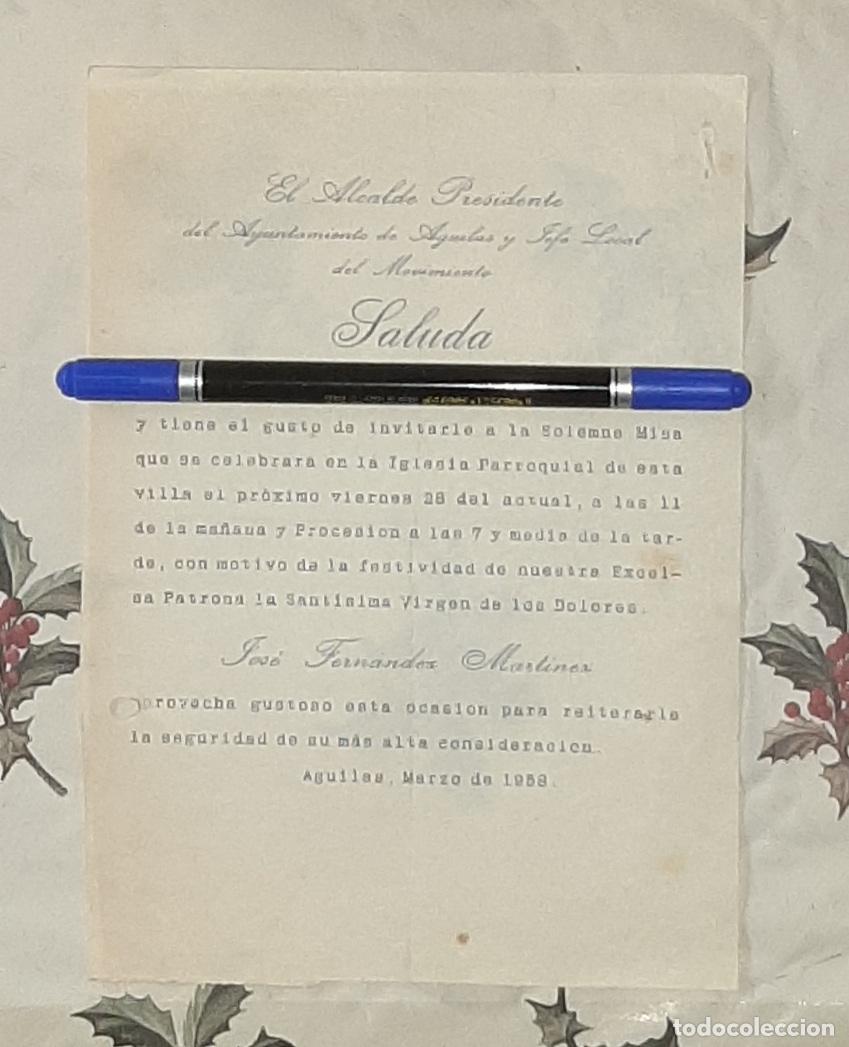 El Alcalde Presidente
del Ayuntamiento de Aguilas y Jefe Local
del Movimiento
Saluda
y tiene el gusto de invitarle a la Solemne Misa
que se celebrara en la Iglesia Parroquial de esta
villa el próximo viernes 28 del actual, a las 11
de la mañana y Procesion a las 7 y media de la tar-
de, con motivo de la festividad de nuestra Excel-
sa Patrona la Santísima Virgen de los Dolores.
José Fernández Martínez
aprovecha gustoso esta ocasion para reiterarle
la seguridad de su más alta consideracion.
Aguilas, Marzo de 1958.
todocoleccion